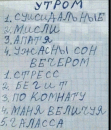 УТРОМ
1. СУИЦИДАЛЬНЫЕ
2. МЫСЛИ
3. АПАТИЯ
4. УЖАСНЫ СОН
ВЕЧЕРОМ
1. СТРЕСС
2. БЕГИТ
3. ПО КОМНАТУ
4. МАНЯ ВЕЛИЧУЯ
5. ЧАЛАССА